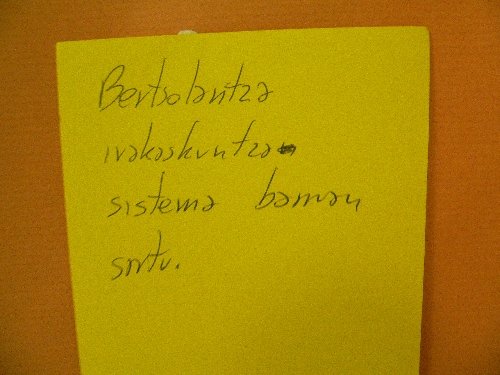 Bertsolaritza
irakaskuntza
sistema barnean
sartu.